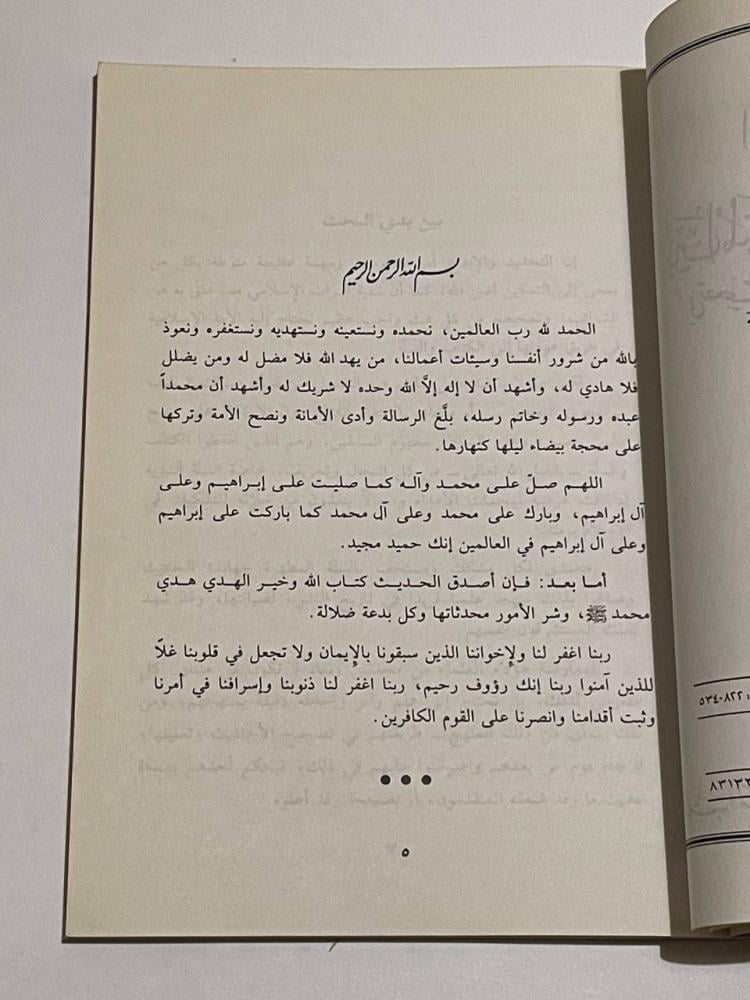 بسم الله الرحمن الرحيم
الحمد لله رب العالمين، نحمده ونستعينه ونستهديه ونستغفره ونعوذ
بالله من شرور أنفسنا وسيئات أعمالنا، من يهد الله فلا مضل له ومن يضلل
فلا هادي له، وأشهد أن لا إله إلاَّ الله وحده لا شريك له وأشهد أن محمداً
عبده ورسوله وخاتم رسله، بلَّغ الرسالة وأدى الأمانة ونصح الأمة وتركها
على محجة بيضاء ليلها كنهارها.
اللهم صلّ على محمد وآله كما صليت على إبراهيم وعلى
آل إبراهيم، وبارك على محمد وعلى آل محمد كما باركت على إبراهيم
وعلى آل إبراهيم في العالمين إنك حميد مجيد.
أما بعد: فإن أصدق الحديث كتاب الله وخير الهدي هدي
محمد ﷺ، وشر الأمور محدثاتها وكل بدعة ضلالة.
ربنا اغفر لنا ولإخواننا الذين سبقونا بالإيمان ولا تجعل في قلوبنا غلاًّ
للذين آمنوا ربنا إنك رؤوف رحيم، ربنا اغفر لنا ذنوبنا وإسرافنا في أمرنا
وثبت أقدامنا وانصرنا على القوم الكافرين.
●●●
٥
٥٣٤-٨٢٢